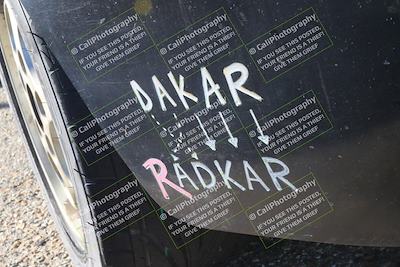 DAKAR
RADKAR
© CaliPhotography
IF YOU SEE THIS POSTED
YOUR FRIEND IS A THIEF
GIVE THEM GRIEF!
© CaliPhotography
IF YOU SEE THIS POSTED
YOUR FRIEND IS A THIEF
GIVE THEM GRIEF!
© CaliPhotography
IF YOU SEE THIS POSTED
YOUR FRIEND IS A THIEF
GIVE THEM GRIEF!
© CaliPhotography
IF YOU SEE THIS POSTED
YOUR FRIEND IS A THIEF
GIVE THEM GRIEF!
© CaliPhotography
IF YOU SEE THIS POSTED
YOUR FRIEND IS A THIEF
GIVE THEM GRIEF!
© CaliPhotography
IF YOU SEE THIS POSTED
YOUR FRIEND IS A THIEF
GIVE THEM GRIEF!
© CaliPhotography
IF YOU SEE THIS POSTED
YOUR FRIEND IS A THIEF
GIVE THEM GRIEF!
© CaliPhotography
IF YOU SEE THIS POSTED
YOUR FRIEND IS A THIEF
GIVE THEM GRIEF!